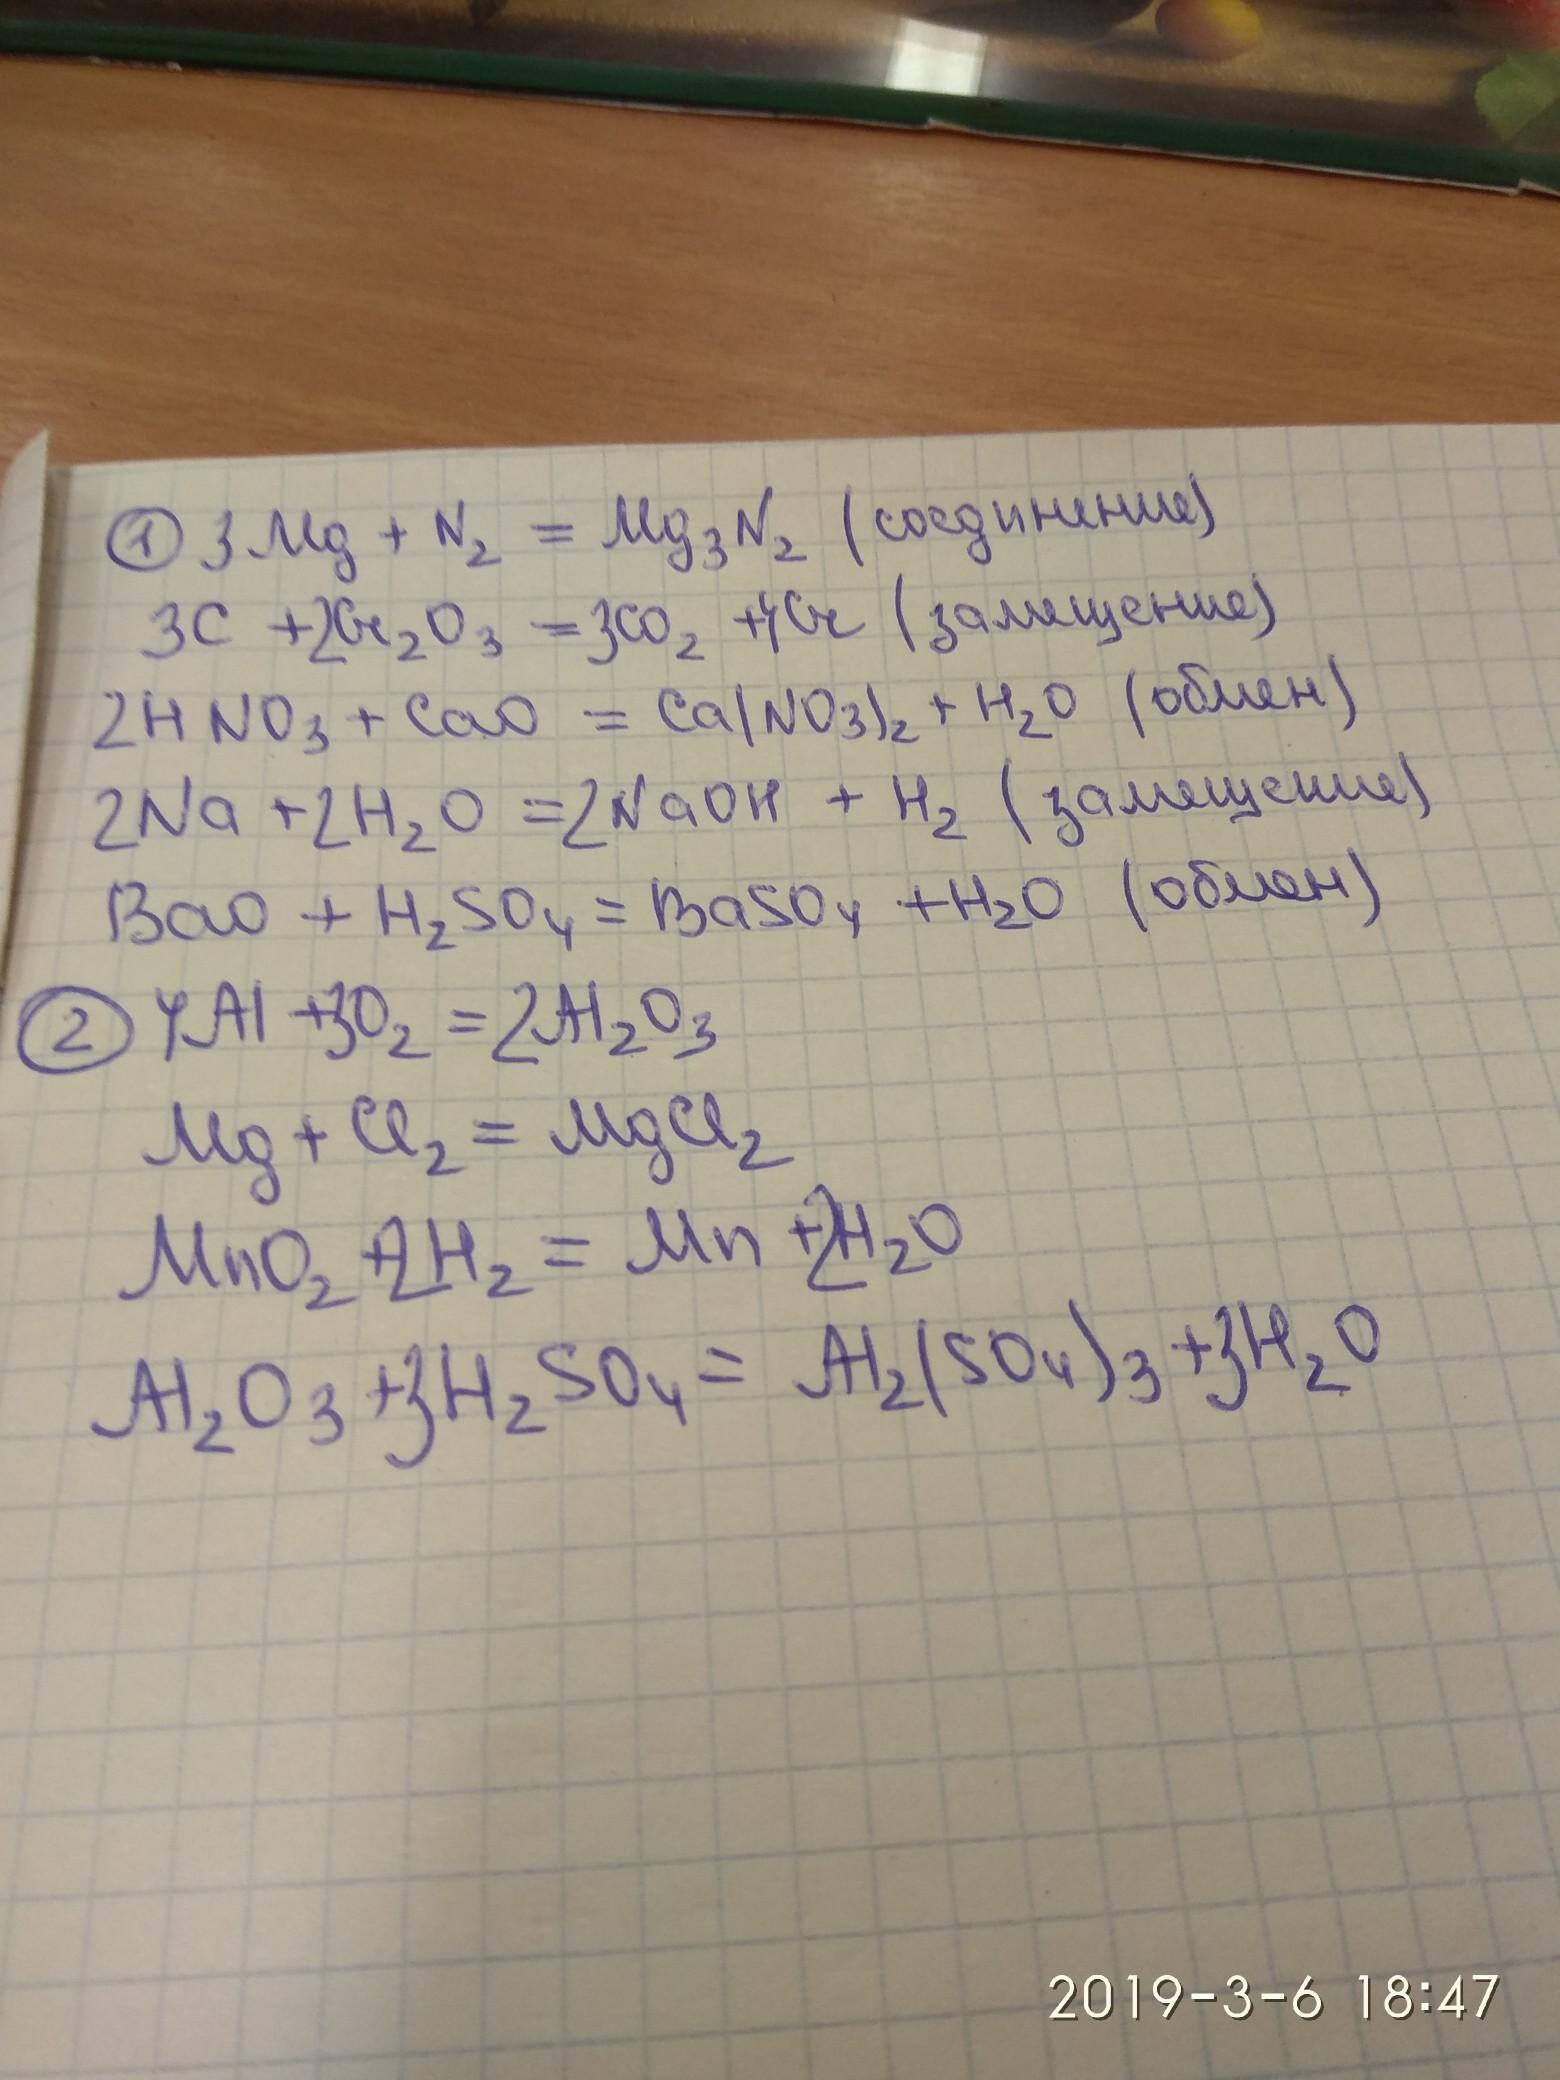 ① 3Mg + N₂ = Mg₃N₂ (соединение)
3C + 2Cr₂O₃ = 3CO₂ + 4Cr (замещение)
2HNO₃ + CaO = Ca(NO₃)₂ + H₂O (обмен)
2Na + 2H₂O = 2NaOH + H₂ (замещение)
BaO + H₂SO₄ = BaSO₄ + H₂O (обмен)
② 4Al + 3O₂ = 2Al₂O₃
Mg + Cl₂ = MgCl₂
MnO₂ + 2H₂ = Mn + 2H₂O
Al₂O₃ + 3H₂SO₄ = Al₂(SO₄)₃ + 3H₂O
2019-3-6 18:47